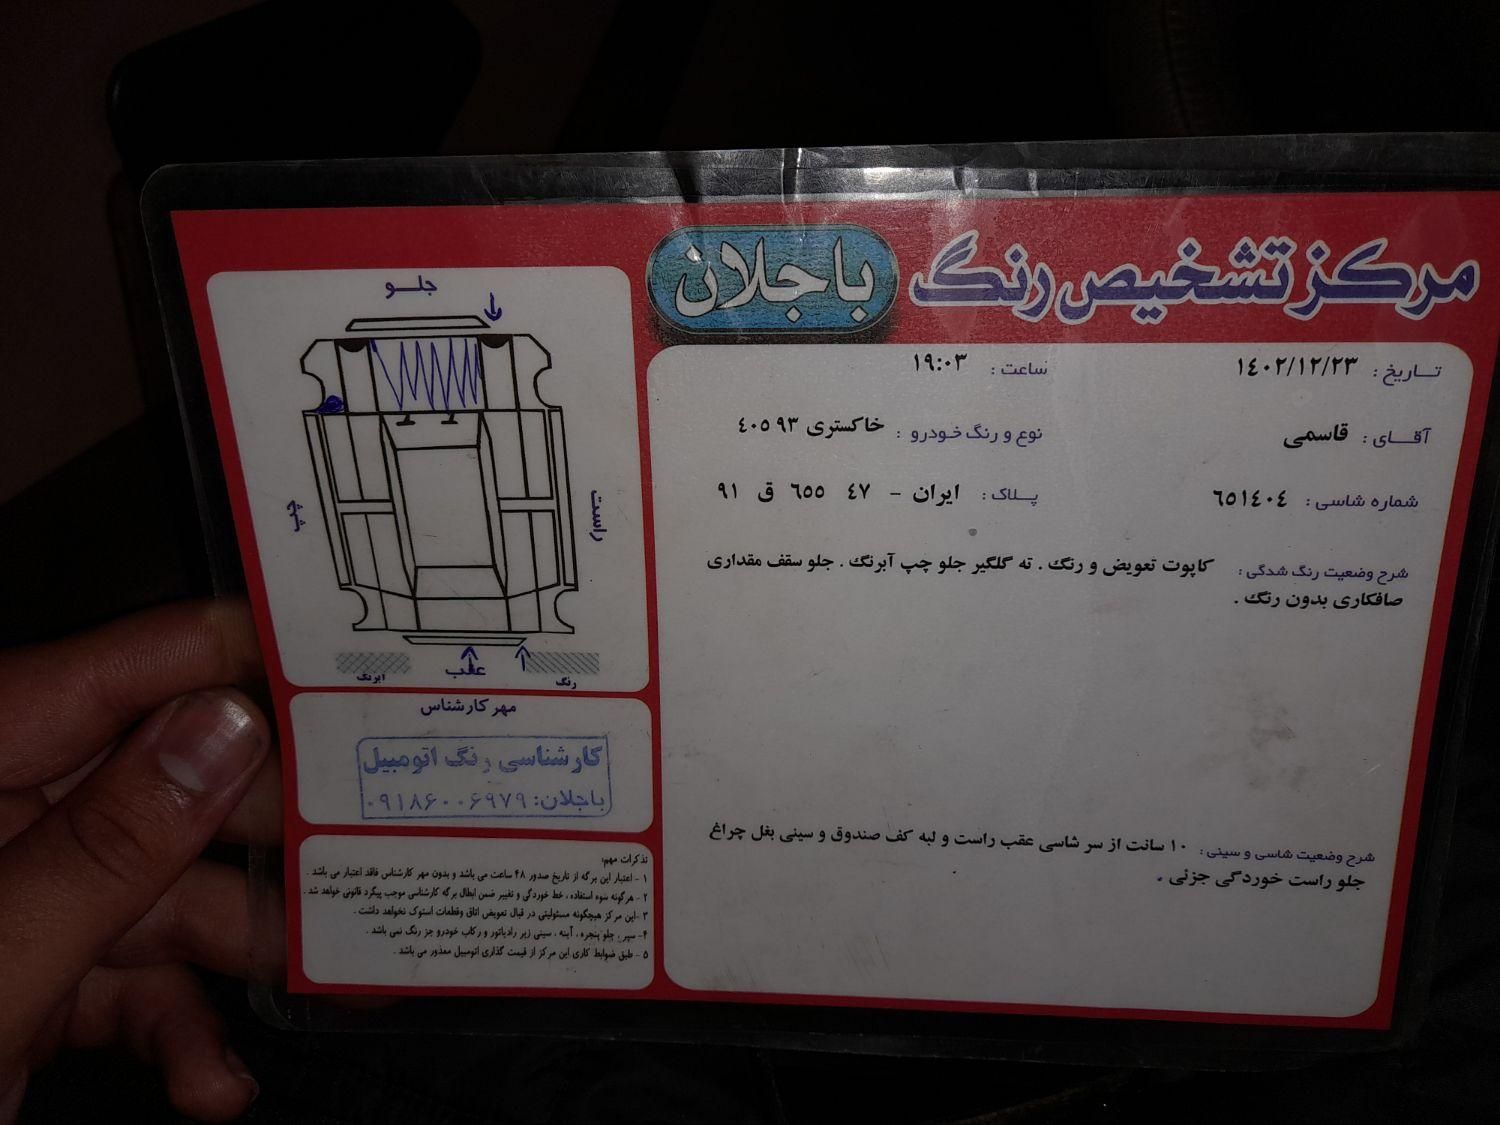 مرکز تشخیص رنگ باجلان
تاریخ : ۱۴۰۲/۱۲/۲۳ ساعت : ۱۹:۰۳
آقای : قاسمی نوع و رنگ خودرو : خاکستری ۹۳ ۴۰۵
شماره شاسی : ۶۵۱۴۰۴ پلاک : ایران - ۴۷ ۶۵۵ ق ۹۱
شرح وضعیت رنگ شدگی : کاپوت تعویض و رنگ . ته گلگیر جلو چپ آبرنگ . جلو سقف مقداری
صافکاری بدون رنگ .
شرح وضعیت شاسی و سینی : ۱۰ سانت از سر شاسی عقب راست و لبه کف صندوق و سینی بغل چراغ
جلو راست خوردگی جزئی .
جلو
چپ
راست
عقب
آبرنگ
رنگ
مهر کارشناس
کارشناسی رنگ اتومبیل
باجلان: ۰۹۱۸۶۰۰۶۹۷۹
تذکرات مهم:
۱ - اعتبار این برگه از تاریخ صدور ۴۸ ساعت می باشد و بدون مهر کارشناس فاقد اعتبار می باشد .
۲ - هرگونه سوء استفاده ، خط خوردگی و تغییر ضمن ابطال برگه کارشناسی موجب پیگرد قانونی خواهد شد .
۳ - این مرکز هیچگونه مسئولیتی در قبال تعویض اتاق وقطعات استوک نخواهد داشت .
۴ - سپر ، جلو پنجره ، آینه ، سینی زیر رادیاتور و رکاب خودرو جز رنگ نمی باشد .
۵ - طبق ضوابط کاری این مرکز از قیمت گذاری اتومبیل معذور می باشد .